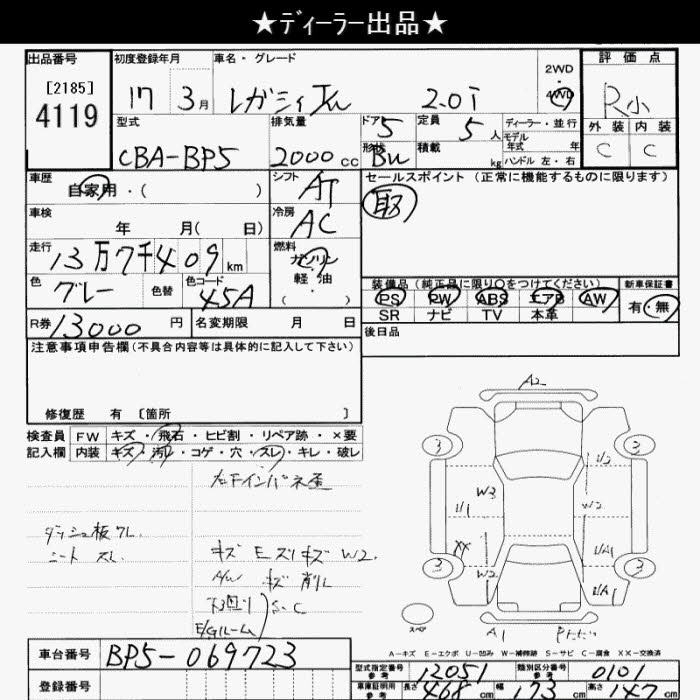 ★ディーラー出品★
出品番号
[2185]
4119
初度登録年月
17 3月
車名・グレード
レガシィ 2.0i
2WD
・
4WD
評価点
R小
外装 内装
C C
型式
CBA-BP5
排気量
2000cc
ドア 5
形状 BW
定員 5人
積載 kg
ディーラー・並行
モデル年式 年
ハンドル 左・右
車歴
自家用・( )
シフト
AT
セールスポイント (正常に機能するものに限ります)
取
車検
年 月( 日)
冷房
AC
走行
13万7千409km
燃料
ガソリン
軽油
( ・ )
色
グレー
色替
色コード
45A
装備品(純正品に限り○をつけてください)
PS PW ABS エアB AW
SR ナビ TV 本革
新車保証書
有・無
R券 13000円
名変期限 月 日
後日品
注意事項申告欄(不具合内容等は具体的に記入して下さい)
修復歴 有 [箇所 ]
検査員
記入欄
FW キズ・飛石・ヒビ割・リペア跡・×要
内装 キズ・汚れ・コゲ・穴・スレ・キレ・破レ
インパネ歪
ダッシュ板ワレ
シートスレ
キズ Eズリキズ W2
A/W キズ 削レ
下廻り
E/Gルーム
S・C
A2
3 3
1/2
W3
U1 W2
XX W2 U/A1
3 3
U/A1
スペア
A1
A-キズ E-エクボ U-凹み W-補修跡 S-サビ C-腐食 XX-交換済
車台番号
BP5-069723
登録番号
型式指定番号
参考
12051
類別区分番号
参考
0101
車庫証明用
参考
長さ 468cm
幅 173cm
高さ 147cm